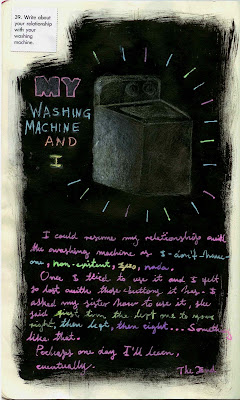 29. Write about
your relationship
with your
washing
machine.
MY
WASHING
MACHINE
AND
I
I could resume my relationship with
the washing machine as I-don't-have-
one, non-existent, zero, nada.
Once I tried to use it and I felt
so lost with those buttons it has. I
asked my sister how to use it, she
said first turn the left one to more
right, then left, then right... Something
like that.
Perhaps one day I'll learn,
eventually.
The End